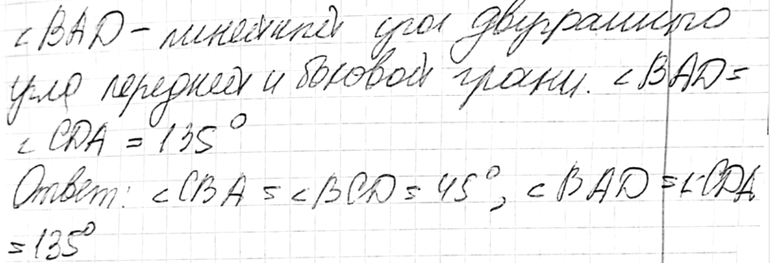 ∠BAD – линейный угол двугранного
угла передней и боковой грани. ∠BAD =
∠CDA = 135°
Ответ: ∠CBA = ∠BCD = 45°, ∠BAD = ∠CDA
= 135°